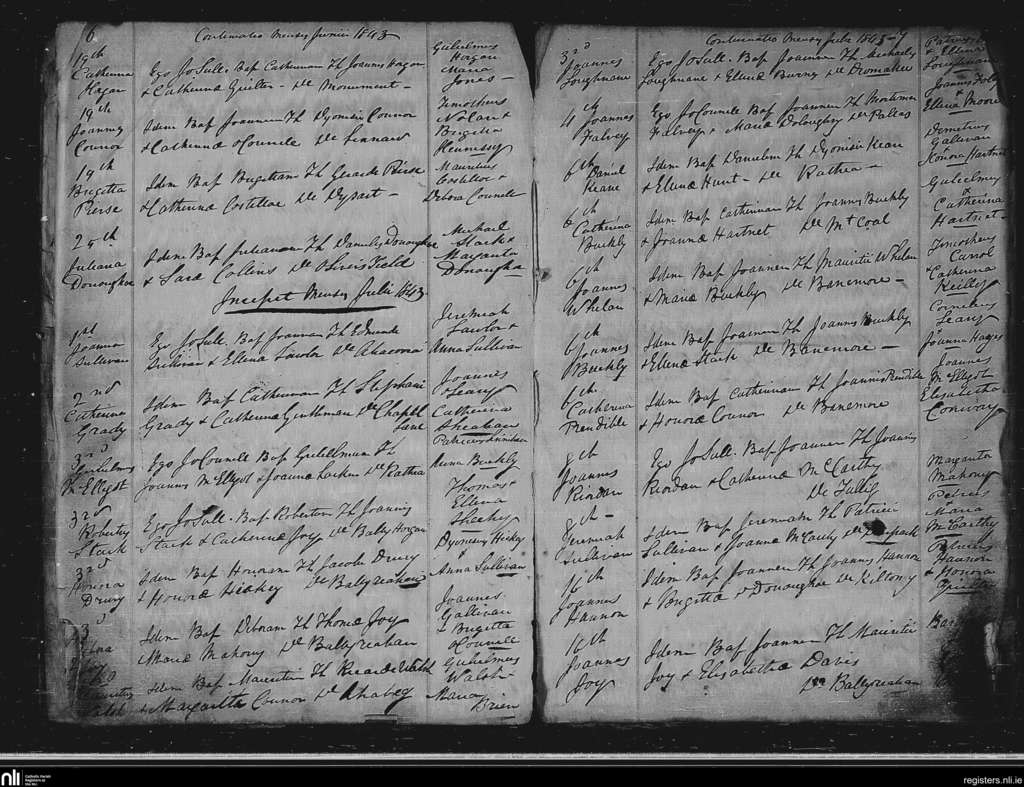 6
Continuatio Mensis Junii 1843
19th
Catherina
Hagan
Ego JoSull. Bap Catherinam Fh Joannis Hagan
& Catherina Quilter - de Monument -
Gulielmus
Hagan
Maria
Jones -
19th
Joannes
Connor
Idem Bap Joannem Fh Dyonisii Connor
& Catherina oConnele de Lennard
Timotheus
Nolan &
Brigetta
Hennessy
19th
Brigetta
Pierse
Idem Bap Brigettam Fh Gerardi Pierse
& Catherina Costelloe de Dysart -
Mauritius
Costelloe &
Debora Connele
25th
Juliana
Donoughoe
Idem Bap Julianam Fh Danielis Donoughoe
& Sara Collins de
Michael
Stack &
Margarita
Donoughoe
Incepit Mensis Julii 1843
1st
Joanna
Sullivan
Ego JoSull. Bap Joannam Fh Edmundi
Sullivan & Ellena Lawlor de
Jeremiah
Lawlor &
Anna Sullivan
2nd
Catherina
Grady
Idem Bap Catherinam Fh Stephani
Grady & Catherina Guithman de Chapel
Lane
Joannes
oLeary &
Catherina
Sheahan
3rd
Gulielmus
McElligot
Ego JoConnele Bap Gulielmum Fh
Joannis McElligot & Joanna Larkin de Rathea
Patricius
Anna Buckly
3rd
Robertus
Stack
Ego JoSull. Bap Robertum Fh Joannis
Stack & Catherina Joy de BallyHorgan
Thomas &
Ellena
Sheehy
3rd
Honora
Drury
Idem Bap Honoram Fh Jacobi Drury
& Honora Hickey de Ballyreahan
Dyonisius Hickey
&
Anna Sullivan
3rd
Idem Bap Deboram Fh Thoma Joy
Maria Mahony de Ballyreahan
Joannes
Gallivan
& Brigetta
oConnele
Mauritius
Walsh
Idem Bap Mauritium Fh Ricardi Walsh
& Margaritta Connor de Ahabeg
Gulielmus
Walsh
Maria
Brien
Continuatio Mensis Julii 1843
7
3rd
Joannes
Loughnane
Ego JoSull. Bap Joannem Fh Michaelis
Loughnane & Ellena Burns de Dromakee
Patricius
& Ellena
Loughnane
4th
Joannes
Falvey
Ego JoConnele Bap Joannem Fh Mortimer
Falvey & Maria Doloughty de Pallas
Joannes Foley
&
Ellena Moore
6th
Daniel
Keane
Idem Bap Danielem Fh Dyonisii Keane
& Ellena Hunt - de Rathea -
Demetrius
Gallivan
&
Honora Hartnet
6th
Catherina
Buckly
Idem Bap Catherinam Fh Joannis Buckly
& Joanna Hartnet de Mt Coal
Gulielmus
&
Catherina
Hartnet -
6th
Joannes
Whelan
Idem Bap Joannem Fh Mauritii Whelan
& Maria Buckly de Banemore -
Timotheus
Carrol
& Catherina
Reilly
6th
Joannes
Buckly
Idem Bap Joannem Fh Joannis Buckly
& Ellena Stack de Banemore -
Cornelius
Leary
Joanna Hayes
6th
Catherina
Prendible
Idem Bap Catherinam Fh Joannis Prendible
& Honora Connor de Banemore
Joannes
McElligot
Elizabetha
Conway
8th
Joannes
Riordan
Ego JoSull. Bap Joannem Fh Joannis
Riordan & Catherina McCarthy
de Tullig
Margarita
Mahony
8th -
Jeremiah
Sullivan
Idem Bap Jeremiam Fh Patricii
Sullivan & Joanna McCarthy de
Patricius
& Maria
McCarthy
16th
Joannes
Hannon
Idem Bap Joannem Fh Joannis Hannon
& Brigitta oDonoughoe de Killtomy
Patricius
Hannon
& Honora
16th
Joannes
Joy
Idem Bap Joannem Fh Mauritii
Joy & Elizabetha Davis
de Ballyreahan
nli
Catholic Parish
Registers at
the NLI
registers.nli.ie